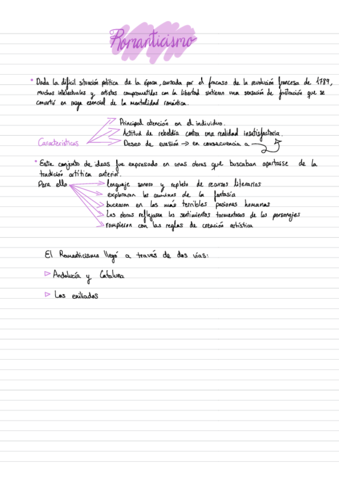 Romanticismo
* Dada la difícil situación política de la época, marcada por el fracaso de la revolución francesa de 1789,
muchos intelectuales y artistas comprometidos con la libertad sintieron una sensación de frustración que se
convirtió en rasgo esencial de la mentalidad romántica.
Principal atención en el individuo.
Actitud de rebeldía contra una realidad insatisfactoria.
Características
Deseo de evasión → en consecuencia a
* Este conjunto de ideas fue expresado en unas obras que buscaban apartarse de la
tradición artítica anterior.
Para ello
lenguaje sonoro y repleto de recursos literarios
exploraron los caminos de la fantasía
bucearon en las más terribles pasiones humanas
Las obras reflejaban los sentimientos tormentosos de los personajes
rompieron con las reglas de creación artística
El Romanticismo llegó a través de dos vías:
▷ Andalucía y Cataluna
▷ Los exiliados